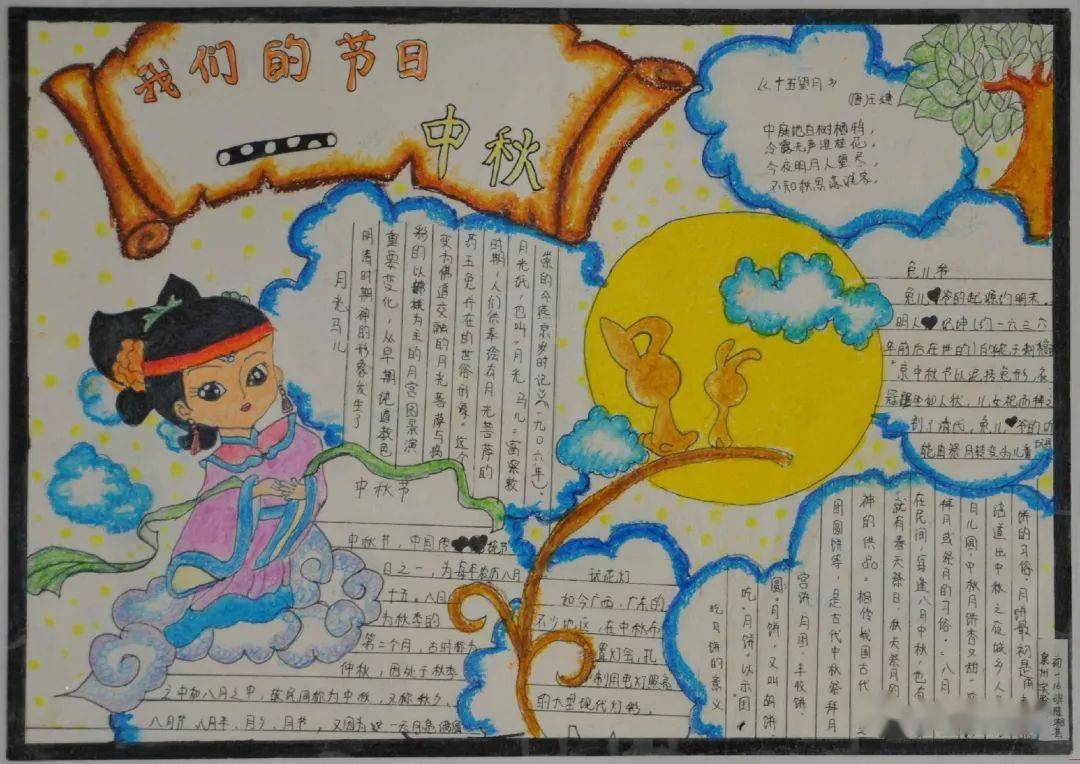 我们的节日
中秋
《十五望月》
(唐)王建
中庭地白树栖鸦，
冷露无声湿桂花。
今夜明月人望尽，
不知秋思落谁家。
月光马儿
明清时期神的形象发生了
重要变化，从早期纯道教色
彩的以嫦娥为主的月宫图景演
变为佛道交融的月光菩萨与捣
药玉兔并在的世俗形象。这个
时期，人们供奉绘有月光菩萨的
月光纸，也叫"月光马儿"富察敦
崇的《燕京岁时记》(一九〇六年)
兔儿爷
兔儿爷的起源约明末。
明人 坤(约一六三六
年前后在世的)
京中秋节以泥抟兔形，衣
冠 坐如人状，儿女祀而拜之
到了清代，兔儿爷的功
能由祭月转变为儿童
中秋节
中秋节，中国传统节
日之一，为每年农历八月
十五。八月
为秋季的
第二个月，古时称为
仲秋，因处于秋季
之中和八月之中，故民间称为中秋，又称秋夕，
八月节 八月半，月夕，月节，又因为这一天月亮满圆
玩花灯
如今广西，广东的
不少地区，在中秋布
置灯会，扎
制用电灯照亮
的大型现代灯彩，
吃月饼的意义
吃"月饼"以示"团
圆"月饼，又叫胡饼
宫饼月团、丰收饼
团圆饼等，是古代中秋祭拜月
神的供品。相传我国古代
就有春天祭日，秋天祭月的
在民间，每逢八月中秋，也有
拜月或祭月的习俗。"八月
月儿圆，中秋月饼香又甜"
话道出中秋之夜城乡人
饼的习俗，月饼最初是用